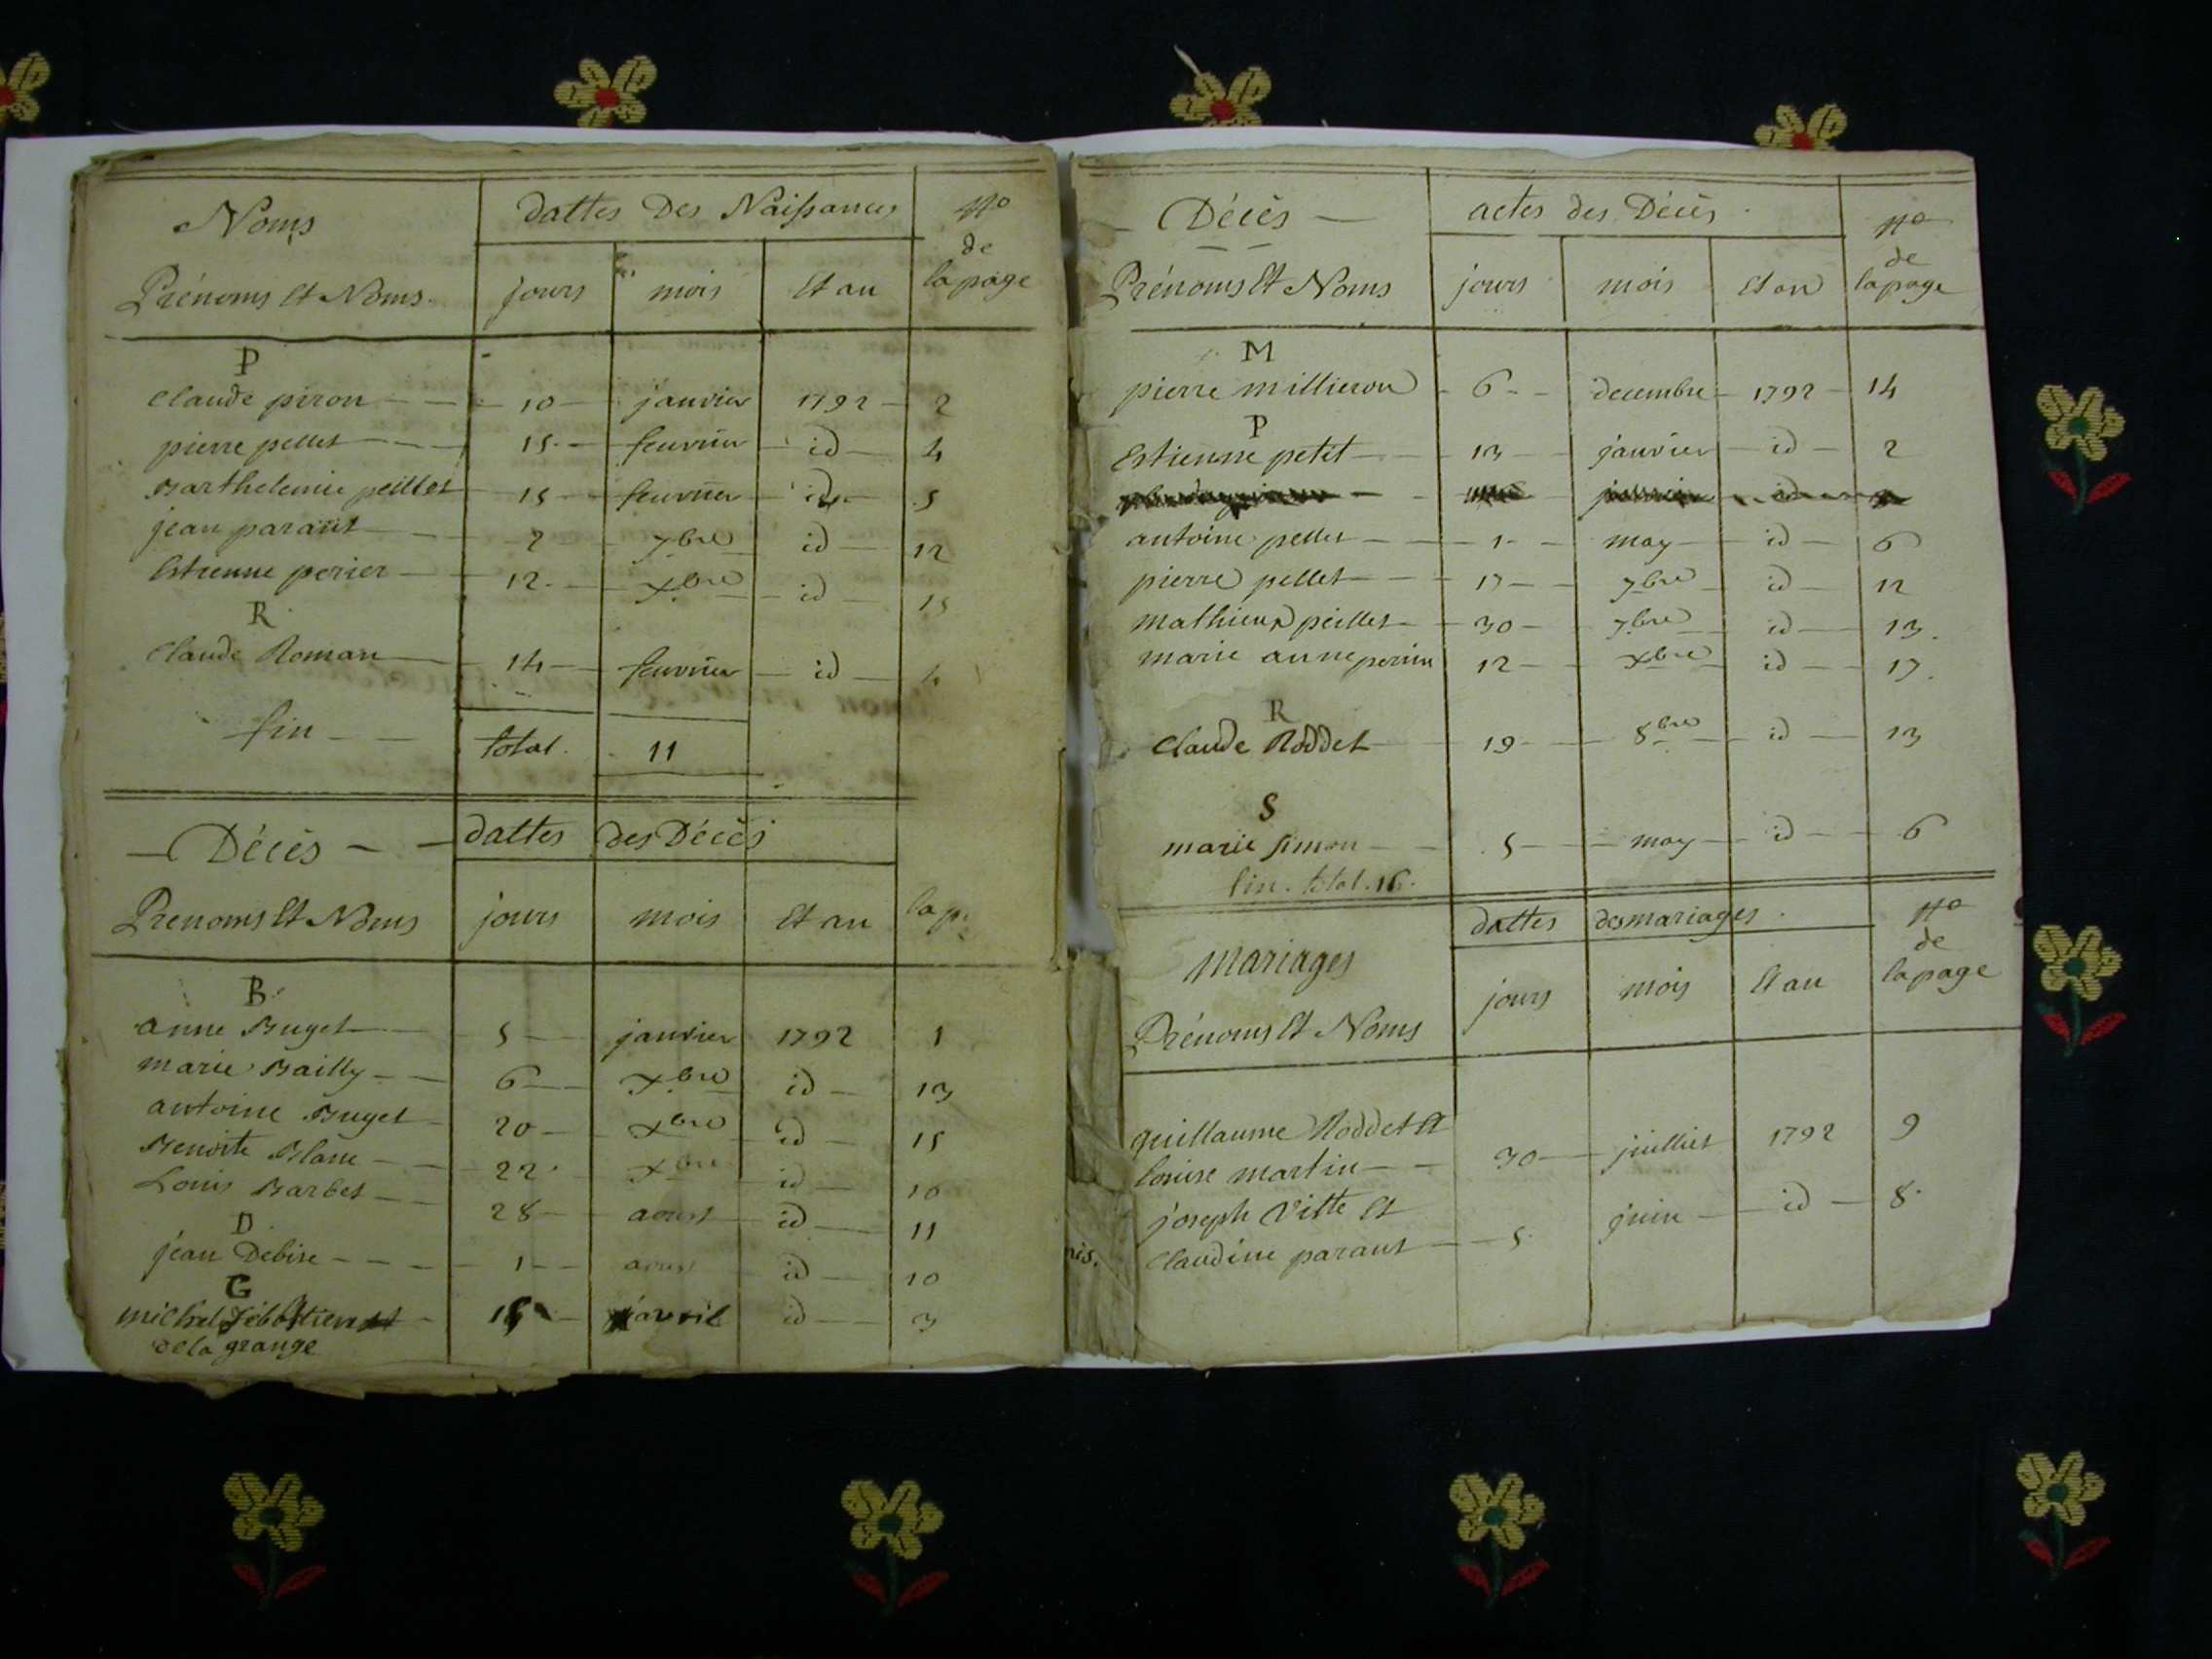 Noms dattes Des Naissances No
de
Prénoms Et Noms jours mois Et an la page
P
Claude piron 10 janvier 1792 2
pierre pellet 15 feuvrier id 4
Barthelemie peillet 15 feuvrier id 5
jean paraut 2 7bre id 12
Estienne perier 12 xbre id 15
R
Claude Roman 14 feuvrier id 4
fin total 11
Décès dattes des Décès
Prenoms Et Noms jours mois Et an la p
B
anne Buget 5 janvier 1792 1
marie Bailly 6 xbre id 13
antoine Buget 20 xbre id 15
Benoite Blanc 22 xbre id 10
Louis Barbet 28 aoust id 11
D
jean Debise 1 aoust id 10
G
michel Sébastien avril id 3
de la grange
Décès actes des Décès No
de
Prénoms Et Noms jours mois Et an la page
M
pierre millieron 6 decembre 1792 14
P
Estienne petit 13 janvier id 2
antoine pellet 1 may id 6
pierre pellet 17 7bre id 12
mathieu peillet 30 7bre id 13
marie anne perier 12 xbre id 17
R
Claude Roddet 19 8bre id 13
S
marie Simon 5 may id 6
fin. total. 16.
dattes des mariages No
mariages de
Prénoms Et Noms jours mois Et an la page
guillaume Roddet Et
louise martin 30 juillet 1792 9
joseph Vitte Et
Claudine paraut 5 juin id 8